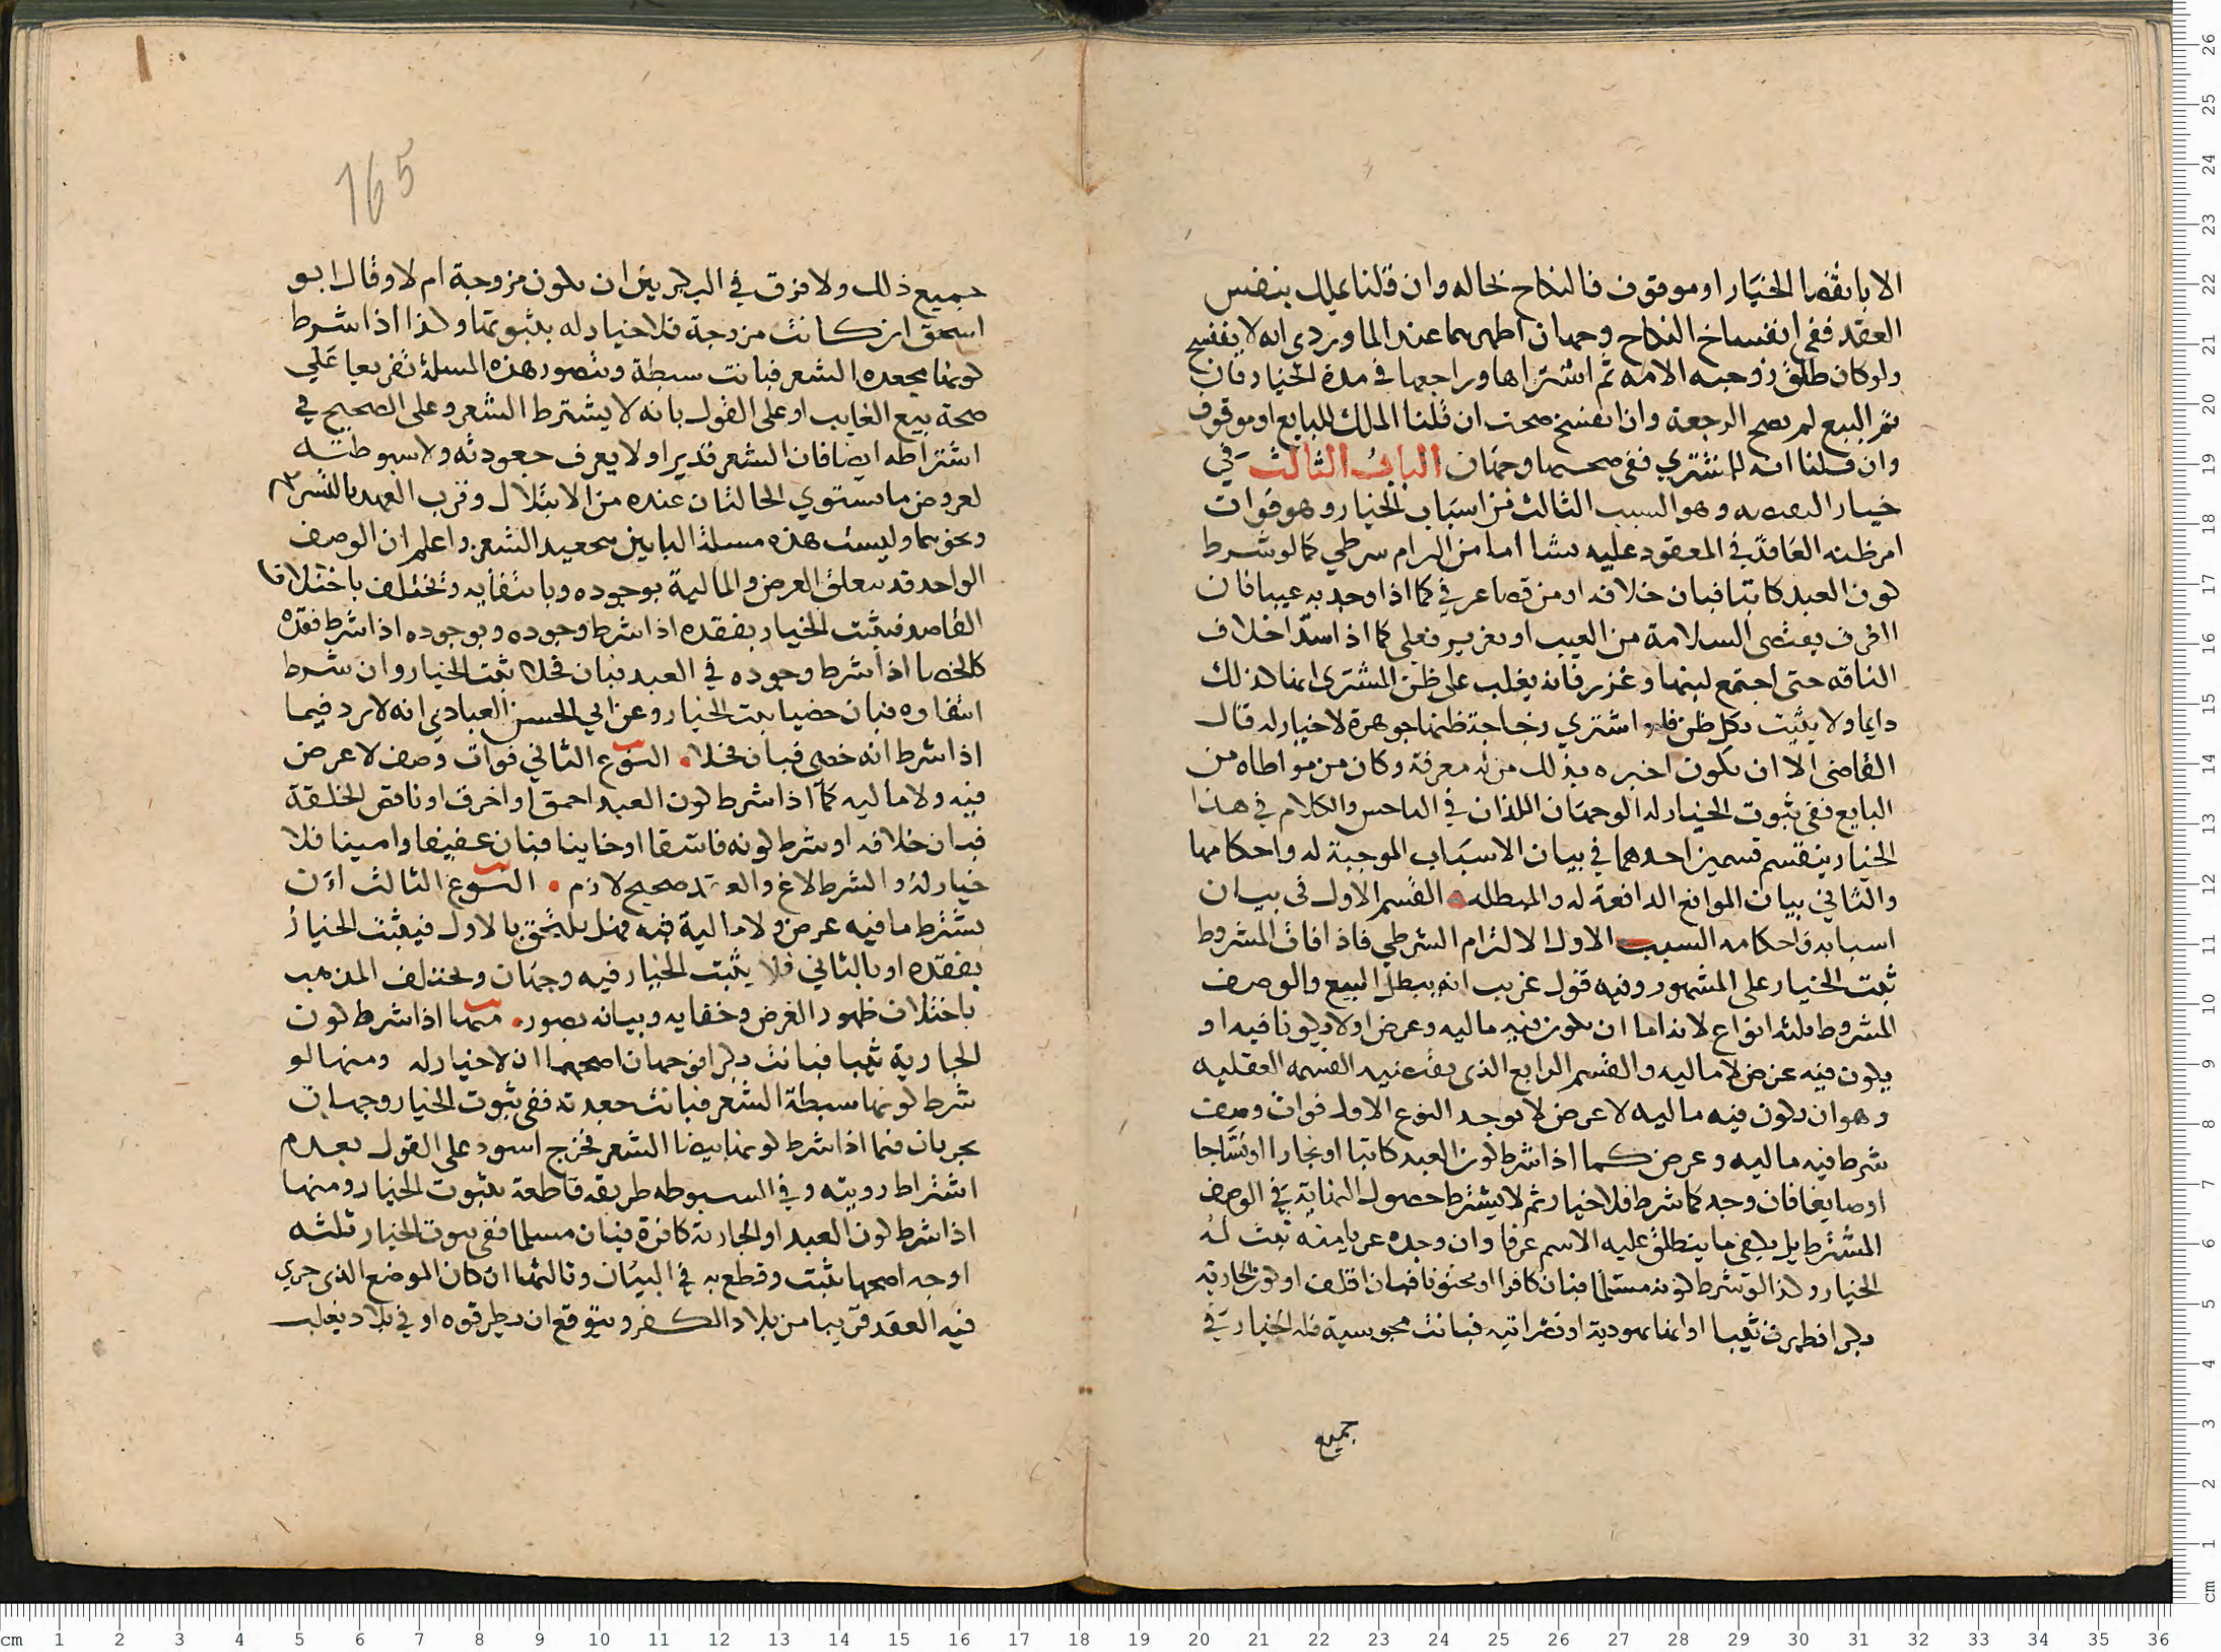 الا بانقضا الخيار او موقوف فالنكاح بحاله وان قلنا يملك بنفس
العقد ففي انفساخ النكاح وجهان اظهرهما عند الماوردي انه لا ينفسخ
ولو كان طلق زوجته الامه ثم اشتراها وراجعها في مدة الخيار فان
تم البيع لم تصح الرجعة وان انفسخ صحت ان قلنا الملك للبايع او موقوف
وان قلنا انه للمشتري ففي صحتها وجهان الباب الثالث في
خيار النقيصه وهو السبب الثالث من اسباب الخيار وهو فوات
امر ظنه العاقد في المعقود عليه نشا اما من الزام شرطي كما لو شرط
كون العبد كاتبا فبان خلافه او من قضا عرفي كما اذا وجد به عيبا فان
العرف يقتضى السلامة من العيب او تغرير فعلى كما اذا اخلاف
الناقه حتى اجتمع لبنها وغزر فانه يغلب على ظن المشترى انها كذلك
دايما ولا يثبت بكل ظن فلو اشترى زجاجة ظنها جوهرة لا خيار له قال
القاضى الا ان يكون اخبره بذلك من له معرفة وكان من مواطاه من
البايع ففي ثبوت الخيار له الوجهان اللذان في الناجش والكلام في هذا
الخيار ينقسم قسمين احدهما في بيان الاسباب الموجبة له واحكامها
والثاني بيان الموانع الدافعة له والمبطله القسم الاول في بيان
اسبابه واحكامه السبب الاول الالتزام الشرطي فاذا فات المشروط
ثبت الخيار على المشهور وفيه قول غريب انه يبطل البيع والوصف
المشروط ثلثه انواع لانه اما ان يكون فيه ماليه وغرض او لا يكونا فيه او
يكون فيه غرض لا ماليه والقسم الرابع الذى يقتضيه القسمه العقليه
وهو ان يكون فيه ماليه لا غرض لا يوجد النوع الاول فوات وصف
شرط فيه ماليه وغرض كما اذا شرط كون العبد كاتبا او نجارا او نساجا
او صايغا فان وجد كما شرط فلا خيار ثم لا يشترط حصول النهاية في الوصف
المشترط بل يكفي ما ينطلق عليه الاسم عرفا وان وجده عريا منه ثبت له
الخيار وكذا لو شرط كونه مسلما فبان كافرا او مختونا فبان اقلف او كون الجارية
بكرا فظهرت ثيبا او انها يهودية او نصرانيه فبانت مجوسية فله الخيار في
جميع
165
جميع ذلك ولا فرق في البكر بين ان يكون مزوجة ام لا وقال ابو
اسحق ان كانت مزوجة فلا خيار له بثيوبتها وكذا اذا شرط
كونها مجعدة الشعر فبانت سبطة وتتصور هذه المسلة تفريعا على
صحة بيع الغايب او على القول بانه لا يشترط الشعر وعلى الصحيح في
اشتراطه ايضا فان الشعر قد يرا ولا يعرف جعودته ولا سبوطته
لعروض ما يستوي الحالتان عنده من الابتلال وقرب العهد بالتسريح
ونحوهما وليست هذه مسلة البابين تجعيد الشعر واعلم ان الوصف
الواحد قد يتعلق الغرض والمالية بوجوده وبانتفايه وتختلف باختلاف
القاصد فيثبت الخيار بفقده اذا شرط وجوده وبوجوده اذا شرط فقده
كالخصا اذا شرط وجوده في العبد فبان فحلا ثبت الخيار وان شرط
انتفاوه فبان خصيا ثبت الخيار وعن ابي الحسن العبادي انه لا يرد فيما
اذا شرط انه خصي فبان فحلا النوع الثاني فوات وصف لا غرض
فيه ولا ماليه كما اذا شرط كون العبد احمق او اخرف او ناقص الخلقة
فبان خلافه او شرط كونه فاسقا او خاينا فبان عفيفا وامينا فلا
خيار له والشرط لاغ والعقد صحيح لازم النوع الثالث ان
يشترط ما فيه غرض ولا مالية فيه فهل يلتحق بالاول فيثبت الخيار
بفقده او بالثاني فلا يثبت الخيار فيه وجهان ويختلف المذهب
باختلاف ظهور الغرض وخفايه وبيانه بصور منها اذا شرط كون
الجارية ثيبا فبانت بكرا فوجهان اصحهما ان لا خيار له ومنها لو
شرط كونها سبطة الشعر فبانت جعدته ففي ثبوت الخيار وجهان
يجريان فيما اذا شرط كونها بيضا الشعر فخرج اسود على القول بعدم
اشتراط رويته وفي السبوطه طريقه قاطعة بثبوت الخيار ومنها
اذا شرط كون العبد او الجارية كافرة فبان مسلما ففي ثبوت الخيار ثلثه
اوجه اصحها يثبت وقطع به في البيان وثالثها ان كان الموضع الذى جرى
فيه العقد قريبا من بلاد الكفر ويتوقع ان يطرقوه او في بلاد يغلب